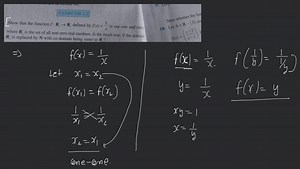 Show that the function f : R* → R* defined by f(x) = 1/x is one-one and onto,
where R* is the set of all non-zero real numbers. Is the result true, if the domain
R* is replaced by N with co-domain being same as R* ?
⇒ f(x) = 1/x
Let x₁ = x₂
f(x₁) = f(x₂)
1/x₁ = 1/x₂
x₂ = x₁
one-one
f(x) = 1/x.
y = 1/x
xy = 1
x = 1/y
f(1/y) = 1/(1/y)
f(x) = y